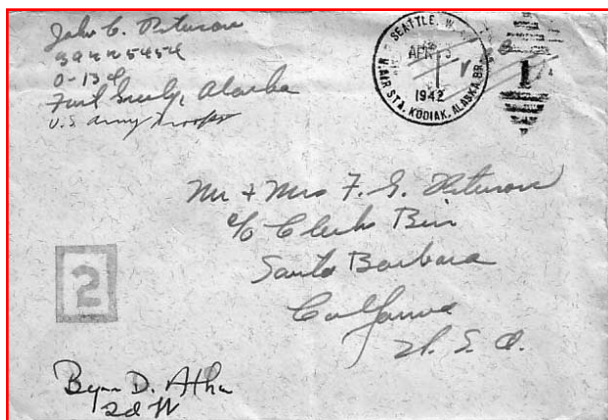 John C. Peterson
39225454
Fort Greely, Alaska
U.S. Army Troops
SEATTLE, W
APR
1942
AIR STA. KODIAK, ALASKA BR.
1
Mr + Mrs F. G. Peterson
c/o Clerks Bin
Santa Barbara
California
U. S. A.
2
D. Atha
2d Lt